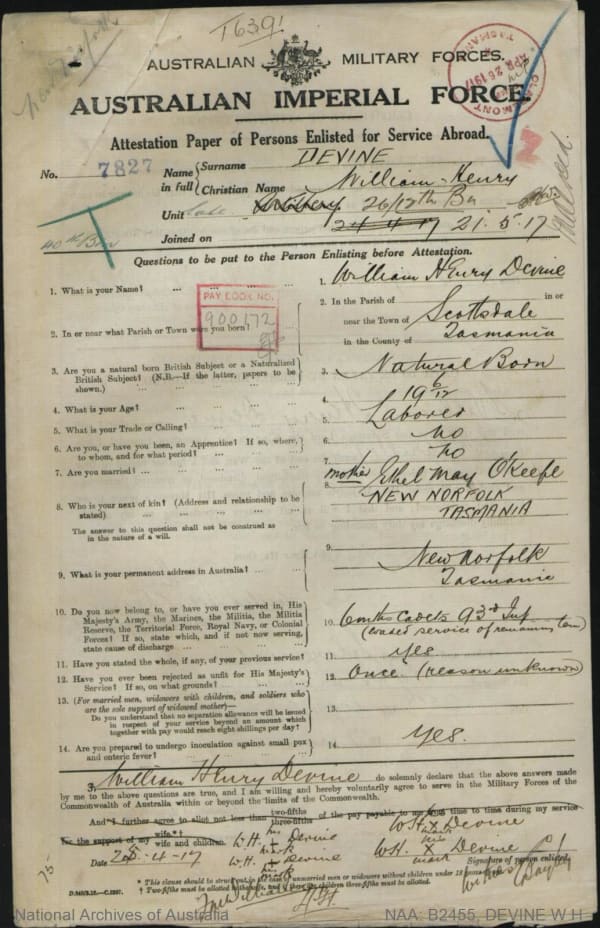 T639
AUSTRALIAN MILITARY FORCES.
AUSTRALIAN IMPERIAL FORCE.
CLAREMONT TASMANIA
APR 26 1917
Attestation Paper of Persons Enlisted for Service Abroad.
No. 7827 Name in full Surname DEVINE
Christian Name William Henry
Unit late Artillery 26/12th Bn
40th Bn
Joined on 24 4 17 21.5.17
Questions to be put to the Person Enlisting before Attestation.
1. What is your Name? ... 1. William Henry Devine
PAY BOOK NO.
900172
2. In or near what Parish or Town were you born? 2. In the Parish of Scottsdale in or
near the Town of
in the County of Tasmania
3. Are you a natural born British Subject or a Naturalized 3. Natural Born
British Subject? (N.B.—If the latter, papers to be
shown.)
4. What is your Age? ... 4. 19 6/12
5. What is your Trade or Calling? ... 5. Laborer
6. Are you, or have you been, an Apprentice? If so, where, 6. no
to whom, and for what period? ...
7. Are you married? ... 7. no
8. Who is your next of kin? (Address and relationship to be 8. mother Ethel May O'Keefe
stated) NEW NORFOLK
TASMANIA
The answer to this question shall not be construed as
in the nature of a will.
9. What is your permanent address in Australia? ... 9. New Norfolk
Tasmania
10. Do you now belong to, or have you ever served in, His 10. Cadets 93rd Inf
Majesty's Army, the Marines, the Militia, the Militia
Reserve, the Territorial Force, Royal Navy, or Colonial
Forces? If so, state which, and if not now serving,
state cause of discharge ...
11. Have you stated the whole, if any, of your previous service? 11. Yes
12. Have you ever been rejected as unfit for His Majesty's 12. Once (reason unknown)
Service? If so, on what grounds? ...
13. (For married men, widowers with children, and soldiers who
are the sole support of widowed mother)—
Do you understand that no separation allowance will be issued
in respect of your service beyond an amount which
together with pay would reach eight shillings per day?
13
14. Are you prepared to undergo inoculation against small pox 14 Yes.
and enteric fever? ...
I, William Henry Devine do solemnly declare that the above answers made
by me to the above questions are true, and I am willing and hereby voluntarily agree to serve in the Military Forces of the
Commonwealth of Australia within or beyond the limits of the Commonwealth.
And *I further agree to allot not less than two-fifths three-fifths of the pay payable to me from time to time during my service
for the support of my wife.*† wife and children.
W.H. his + mark Devine
W.H. his x mark Devine
Date 25-4-17
W.H. his + mark Devine
W.H. his X mark Devine
Signature of person enlisted.
* This clause should be struck out in the case of unmarried men or widowers without children under 18 years of age.
† Two-fifths must be allotted to the wife, and if there are children three-fifths must be allotted.
National Archives of Australia
NAA: B2455, DEVINE W H